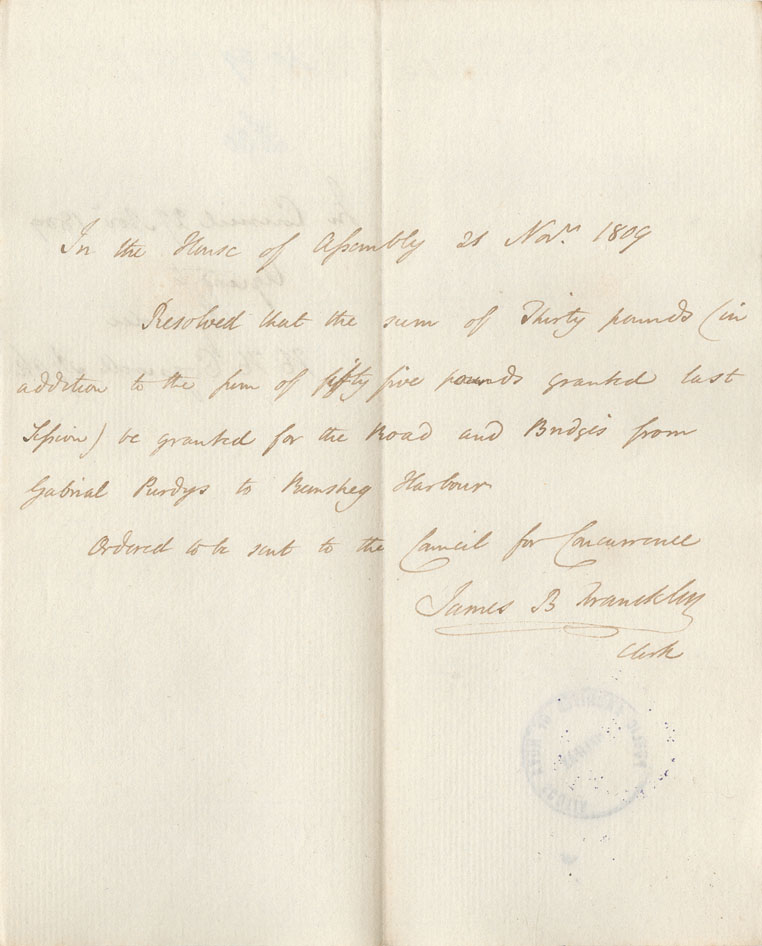 In the House of Assembly 21 Novr. 1809
Resolved that the sum of Thirty pounds (in
addition to the sum of fifty five pounds granted last
Session) be granted for the Road and Bridges from
Gabrial Purdys to Remsheg Harbour
Ordered to be sent to the Council for Concurrence
James B Francklin
Clerk
PUBLIC ARCHIVES OF NOVA SCOTIA